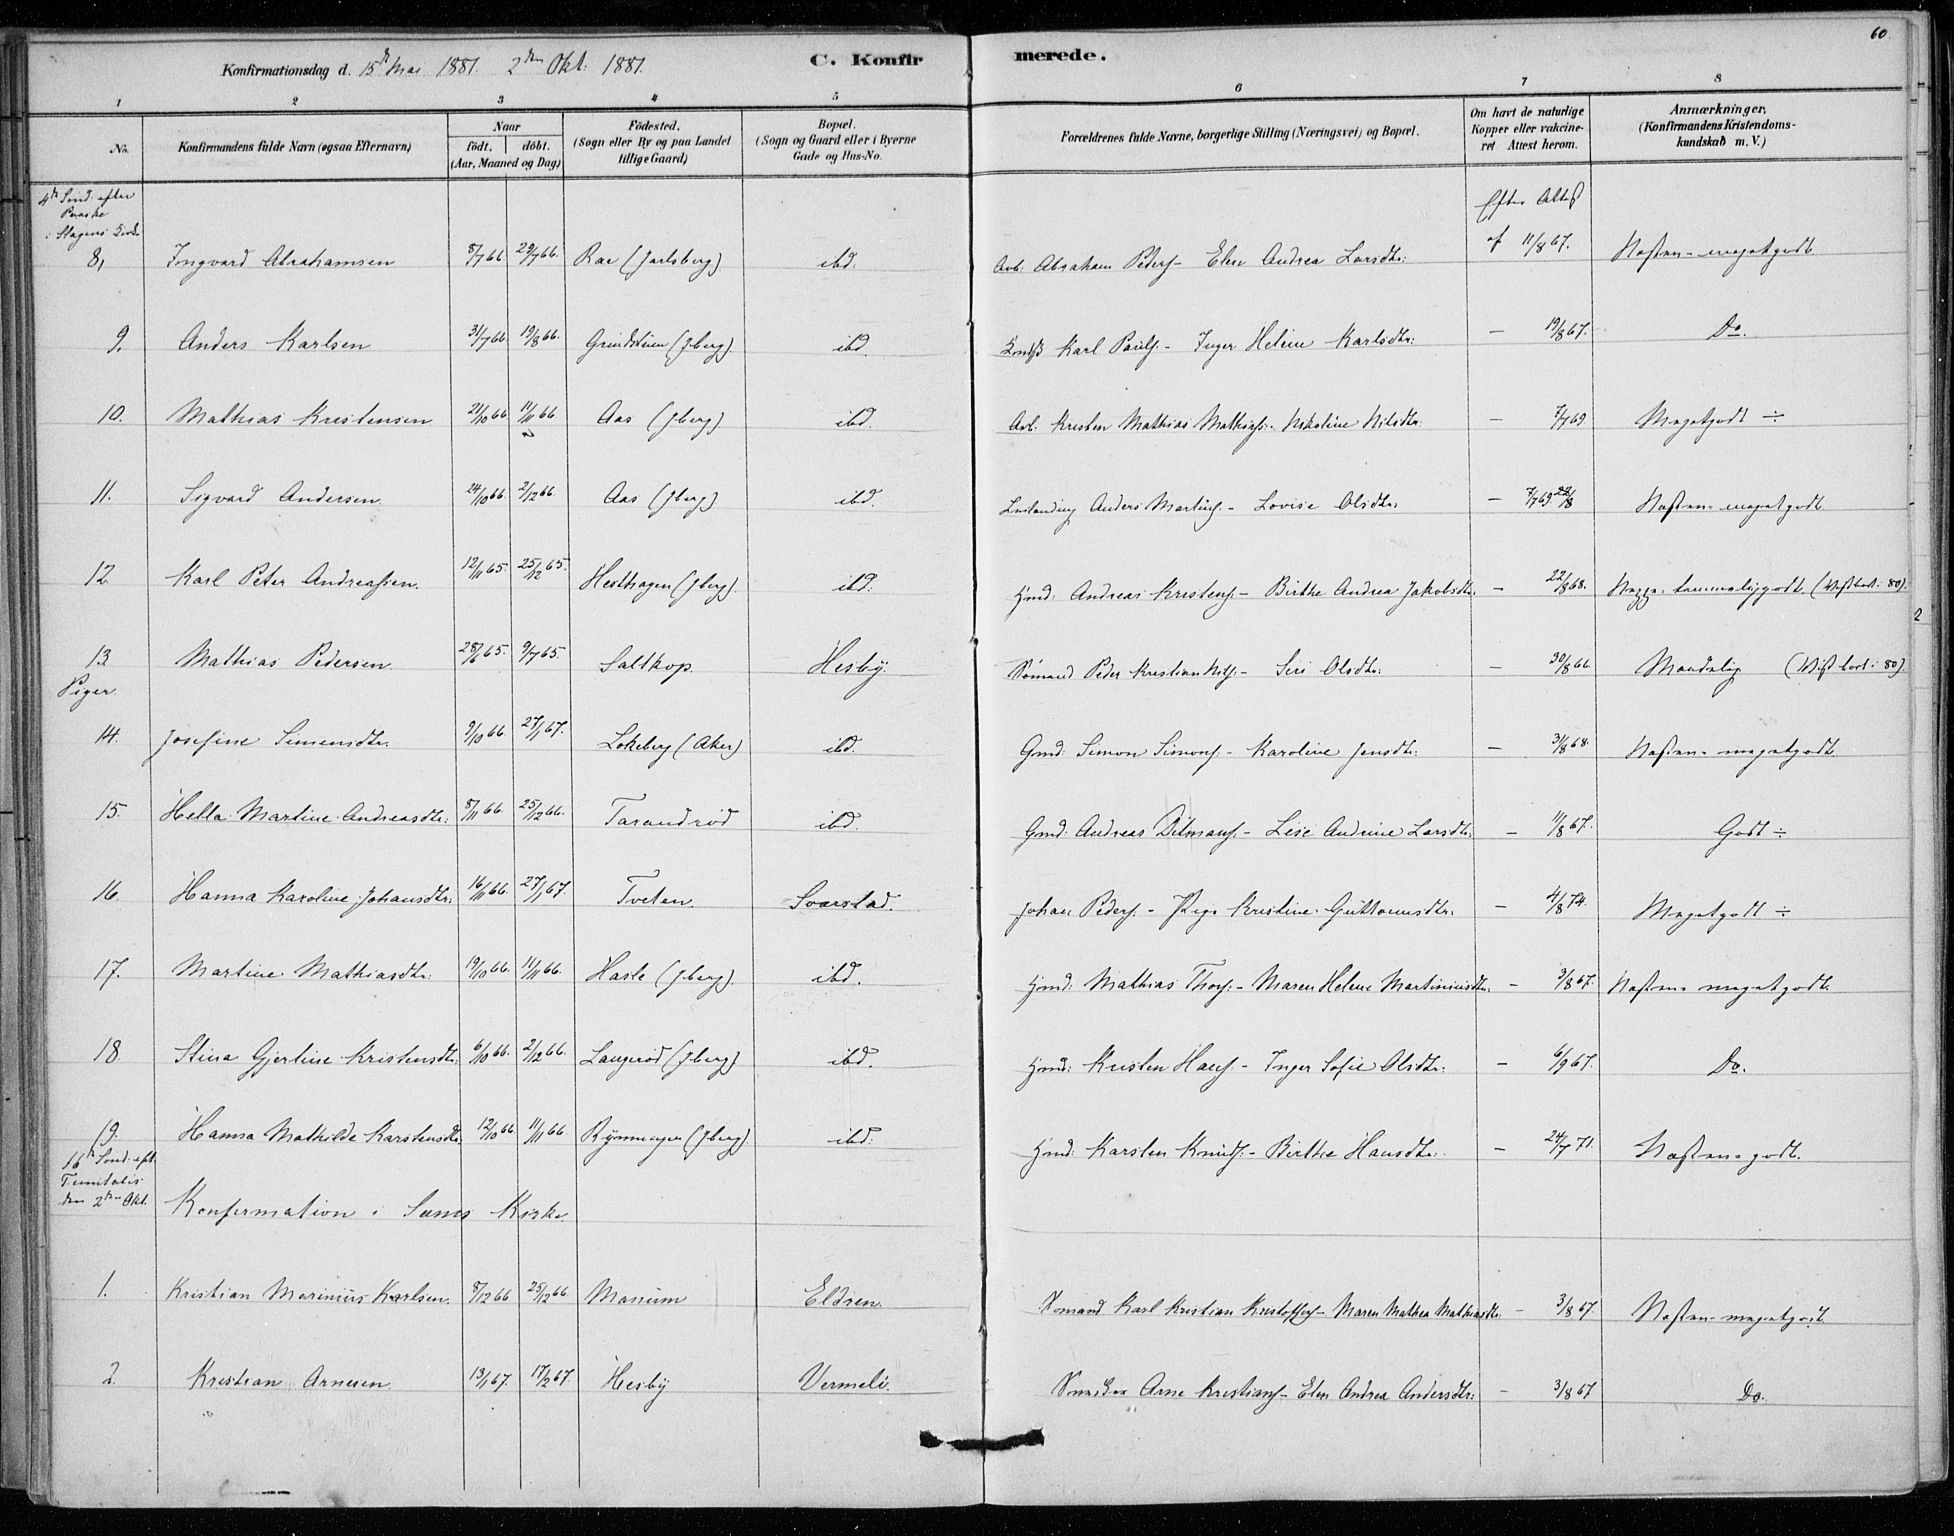 60.
Konfirmationsdag d. 15de Mai 1881. 2den Okt. 1881. C. Konfirmerede.
1 2 3 4 5 6 7 8
No. Konfirmandens fulde Navn (ogsaa Efternavn) Naar født. døbt. (Aar, Maaned og Dag) Fødested. (Sogn eller By og paa Landet tillige Gaard) Bopæl. (Sogn og Gaard eller i Byerne Gade og Hus-No. Forældrenes fulde Navne, borgerlige Stilling (Næringsvei) og Bopæl. Om havt de naturlige Kopper eller vakcineret Attest herom. Anmærkninger. (Konfirmandens Kristendomskundskab m. V.)
4de Sønd. efter Paaske i Slagens Kirke
8, Ingvard Abrahamsen 8/7 66. 29/7 66. Rae (Jarlsberg) ibd. Arb. Abraham Peders. - Elen Andrea Larsdtr: Efter Attest af 11/8 67. Næsten meget godt.
9. Anders Karlsen 31/7 66. 19/8 66. Grindstuen (Jberg). ibd. Karl Pauls. - Inger Helene Karlsdtr: - 19/8 67. Do.
10. Mathias Kristensen 21/10 66 11/11 66. Aas (Jberg) ibd. Arb. Kristen Mathias Mathias. - Nikoline Nilsdtr. - 7/7 69 Meget godt ÷
11. Sigvard Andersen 24/10 66. 2/12 66. Aas (Jberg) ibd. Anders Martins. - Lovise Olsdtr. - 7/7 69 22/8 Næsten meget godt
12. Karl Peter Andreassen. 12/11 65. 25/12 65. Hesthagen (Jberg). ibd. Hmd: Andreas Kristens. - Birthe Andrea Jakobsdtr. - 22/8 68. temmelig godt. (Vist bort i 80).
13. Mathias Pedersen. 28/6 65. 9/7 65. Saltkop. Hesby. Sømand Peder Kristian Nils. - Siri Olsdtr: - 30/8 66. Maadelig (Vist bort i 80)
Piger.
14. Josefine Simensdtr. 9/10 66. 27/1 67. Lokeberg (Aker) ibd. Gmd: Simon Simons. - Karoline Jensdtr: - 31/8 68. Næsten meget godt.
15. Hella Martine Andreasdtr: 8/11 66. 25/12 66. Tarandrød ibd. Gmd: Andreas Ditmans. - Lise Andrine Larsdtr. - 11/8 67. Godt ÷
16. Hanna Karoline Johansdtr: 16/11 66. 27/1 67. Tveten. Svarstad. Johan Peders. - Pige Kristine Guttormsdtr. - 4/8 74. Meget godt ÷
17. Martine Mathiasdtr: 19/10 66. 11/11 66. Hasle (Jberg). ibd. Hmd: Mathias Thors. - Maren Helene Martiniusdtr. - 3/8 67. Næsten meget godt.
18. Stina Gjertine Kristensdtr. 6/10 66. 2/12 66. Langerød (Jberg) ibd. Hmd: Kristen Hans. - Inger Sofie Olsdtr: - 6/9 67. Do.
19. Hanna Mathilde Karstensdtr. 12/10 66 11/11 66 (Jberg) ibd: Hmd: Karsten Knuds. - Birthe Hansdtr: - 24/7 71. Næsten godt.
16de Sønd. eft. Trinitatis den 2den Okt. Konfirmation i Sems Kirke.
1. Kristian Marinius Karlsen. 8/12 66 25/12 66 Manum Eldren. Sømand Karl Kristian Kristoffers. - Maren Mathea Mathiasdtr. - 3/8 67. Næsten meget godt
2. Kristian Arnesen 13/1 67. 17/2 67. Hesby Vermeli. Arne Kristians. - Elen Andrea Andersdtr: - 3/8 67 Do.